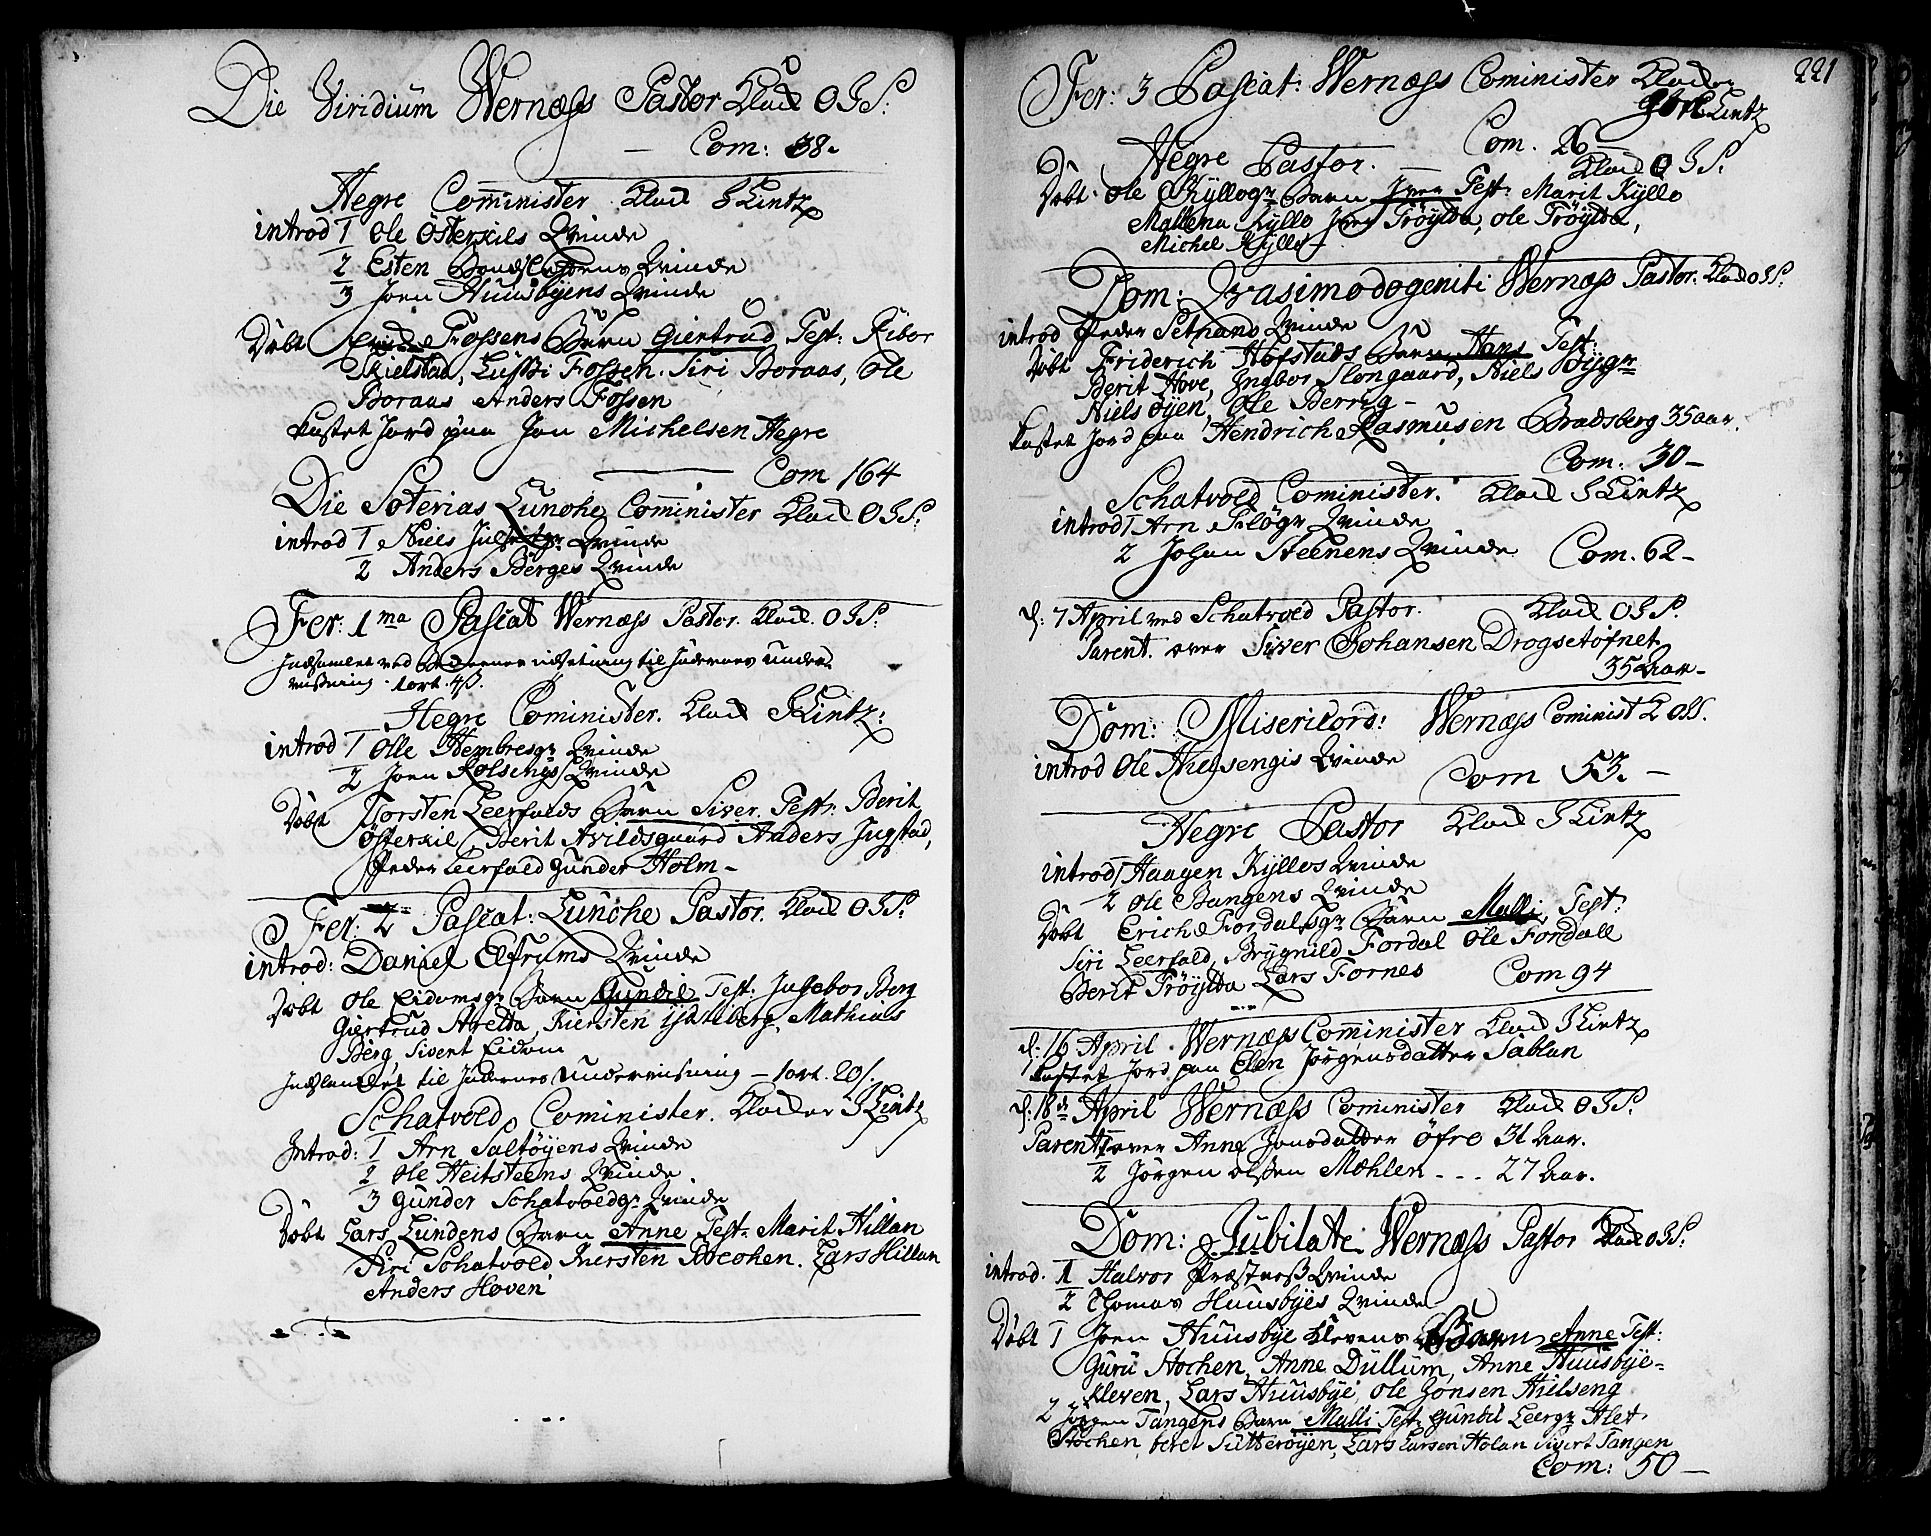 Die Viridium Wernæss Pastor Klock OJS:
Com: 38.
Hegre Comminister Klock S Lintz
introd 1 Ole Östersils Qvinde
2 Esten Qvinde
3 Joen Huusbyens Qvinde
Döbt Fossens Barn Giertrud Test: Ribor
Skielstad, Lussi Fossen. Siri Boraas, Ole
Boraas Anders Fossen
kastet Jord paa Jon Michelsen Hegre
Com 164
Die Soterias Lunche Comminister Klock OJS:
introd 1 Niels Qvinde
2 Anders Berges Qvinde
Fer: 1ma Pascat Wernæss Pastor. Klock. OJS:
til Jødernes under
viisning. 1 ort. 4 s.
Hegre Cominister. Klock S Lintz:
introd 1 Olle Hembresgr Qvinde
2 Joen Kolsengs Qvinde
Döbt Torsten Leerfalds Barn Siver. Test: Berit
Östersil, Berit Avildsgaard Anders Ingstad,
Peder Leerfald Gunder Holm -
Fer: 2 Pascat: Lunche Pastor. Klock OJS.
introd: Daniel Elfrums Qvinde
Döbt Ole Eidomsgr Barn Gundil Test: Ingebor Berg
Giertrud Aretta, Kiersten Mathias
Berg, Sivert Eidom
Indsamlet til Jødernes Underviisning - 1 ort. 20 s.
Schatvold Cominister. Klocker S Lintz
Introd: 1 Arn Saltöyens Qvinde
2 Ole Heitsteens Qvinde
3 Gunder Schatvoldgr Qvinde
Döbt Lars Lundens Barn Anne Test: Marit Hillan
Siri Schatvold Kiersten Stochen. Lars Hillan
Anders Hoven
221
Fer: 3 Pascat: Wernæss Cominister Klocker
Lintz
Com. 26
Hegre Pastor. Klock OJS.
Döbt. Ole Kyllogr Barn Iver Test: Marit Kyllo
Mallena Kyllo Tröytda, Ole Tröytda,
Michel Kyllo
Dom: Qvasimodogeniti Wernæss Pastor. Klock OJS.
introd Peder Sethans Qvinde
Döbt Friderich Hofstads Barn Hans Test:
Berit Hove, Ingbor Slongaard, Niels
Niels Öyen, Ole Berrig -
kastet Jord paa Hendrich Rasmusen Bradsberg 35 aar.
Com: 30 -
Schatvold Cominister. Klock S Lintz
introd 1 Arn Qvinde
2 Johan Steenens Qvinde Com. 62 -
d: 7 April ved Schatvold Pastor. Klock OJS.
Parent. over Siver Johansen Drogsetöfnet
35 Aar -
Dom: Misericord: Wernæss Cominist K OJS.
introd Ole Thiesengis Qvinde
Com 53. -
Hegre Pastor Klock S Lintz
introd 1 Haagen Kyllos Qvinde
2 Ole Bangens Qvinde
Döbt Erich Fordalsgr Barn Malli, Test:
Siri Leerfald, Brÿgnild Fordal Ole Fordall
Berit Tröytda Lars Fornes Com 94
d: 16 April. Wernæss Cominister Klock S Lintz
kastet Jord paa Elen Jörgensdatter Sablan
d: 18d April Wernæss Cominister Klock OJS.
Parent 1 over Anne Jonsdatter Öfre 31 Aar.
2 Jörgen Olssen Mæhlen - - - 27 Aar.
Dom: Jubilate Wernæss Pastor Klock OJS:
introd. 1 Halvor Præstmoß Qvinde
2 Thomas Huusbyes Qvinde
Döbt 1 Joen Huusbye Klevens Barn Anne Test:
Guru Stochen, Anne Dullum, Anne Huusbye-
kleven, Lars Huusbye, Ole Jonsen Hielseng
2 Jörgen Tangens Barn Malli Test: Gundil Leergr Alet
Stochen, beret Sutteröyen, Lars Larsen Holan Sivert Tangen
Com: 50 -